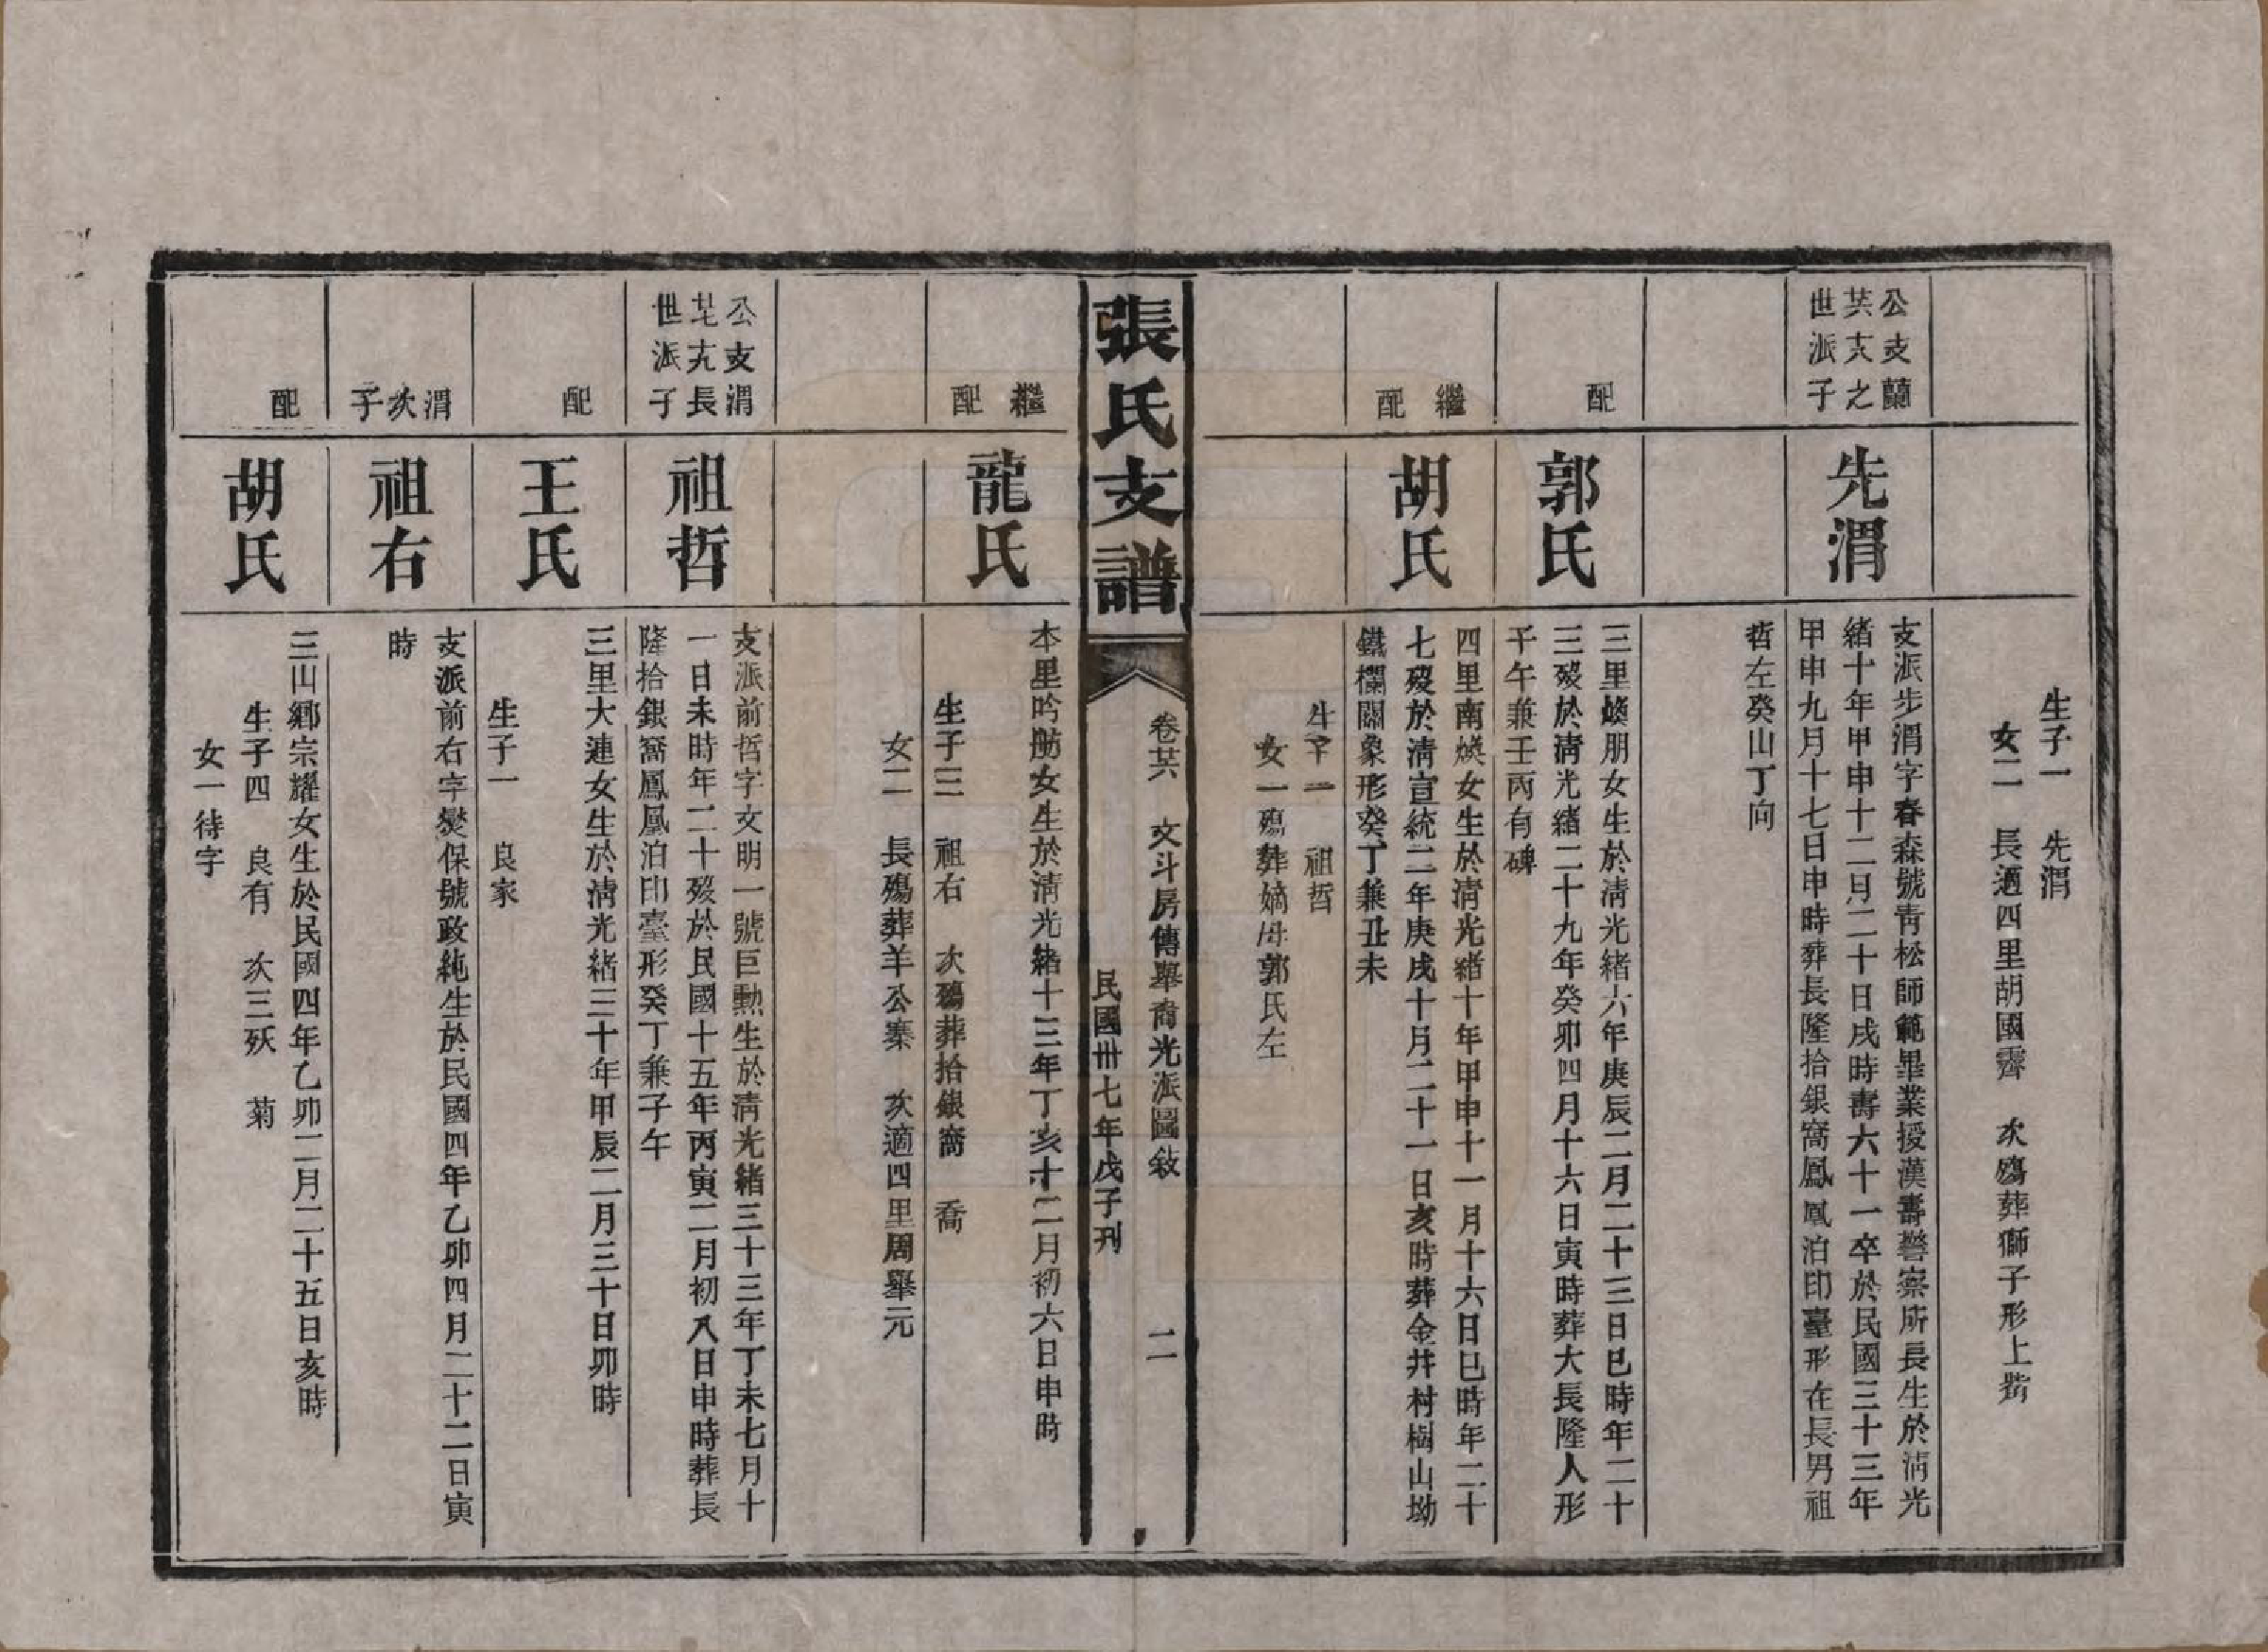 生子一　先渭
女二　長適四里胡國霽　次殤葬獅子形上嵴
公支蘭
共六之
世派子
先渭
支派步渭字春森號青松師範畢業授漢壽警察所長生於淸光
緒十年甲申十二月二十日戌時壽六十一卒於民國三十三年
甲申九月十七日申時葬長隆拾銀窩鳳凰泊印臺形在長男祖
哲左癸山丁向
配
郭氏
三里煥朋女生於淸光緒六年庚辰二月二十三日巳時年二十
三歿於淸光緒二十九年癸卯四月十六日寅時葬大長隆人形
子午兼壬丙有碑
繼
配
胡氏
四里南煥女生於淸光緒十年甲申十一月十六日巳時年二十
七歿於淸宣統二年庚戌十月二十一日亥時葬金井村樹山坳
鐵欄關象形癸丁兼丑未
生子一　祖哲
女一殤葬嫡母郭氏左
張氏支譜
卷廿六　文斗房傳舉裔光派圖敍　二
民國卅七年戊子刊
繼
配
龍氏
本里吟舫女生於淸光緒十三年丁亥十二月初六日申時
生子三　祖右　次殤葬拾銀窩　喬
女二　長殤葬羊公寨　次適四里周舉元
公支渭
廿七六長
世派子
祖哲
支派前哲字文明一號巨勳生於淸光緒三十三年丁未七月十
一日未時年二十歿於民國十五年丙寅二月初八日申時葬長
隆拾銀窩鳳凰泊印臺形癸丁兼子午
配
王氏
三里大連女生於淸光緒三十年甲辰二月三十日卯時
生子一　良家
渭
次
子
祖右
支派前右字爕保號政純生於民國四年乙卯四月二十二日寅
時
配
胡氏
三山鄉宗耀女生於民國四年乙卯二月二十五日亥時
生子四　良有　次三殀　菊
女一待字